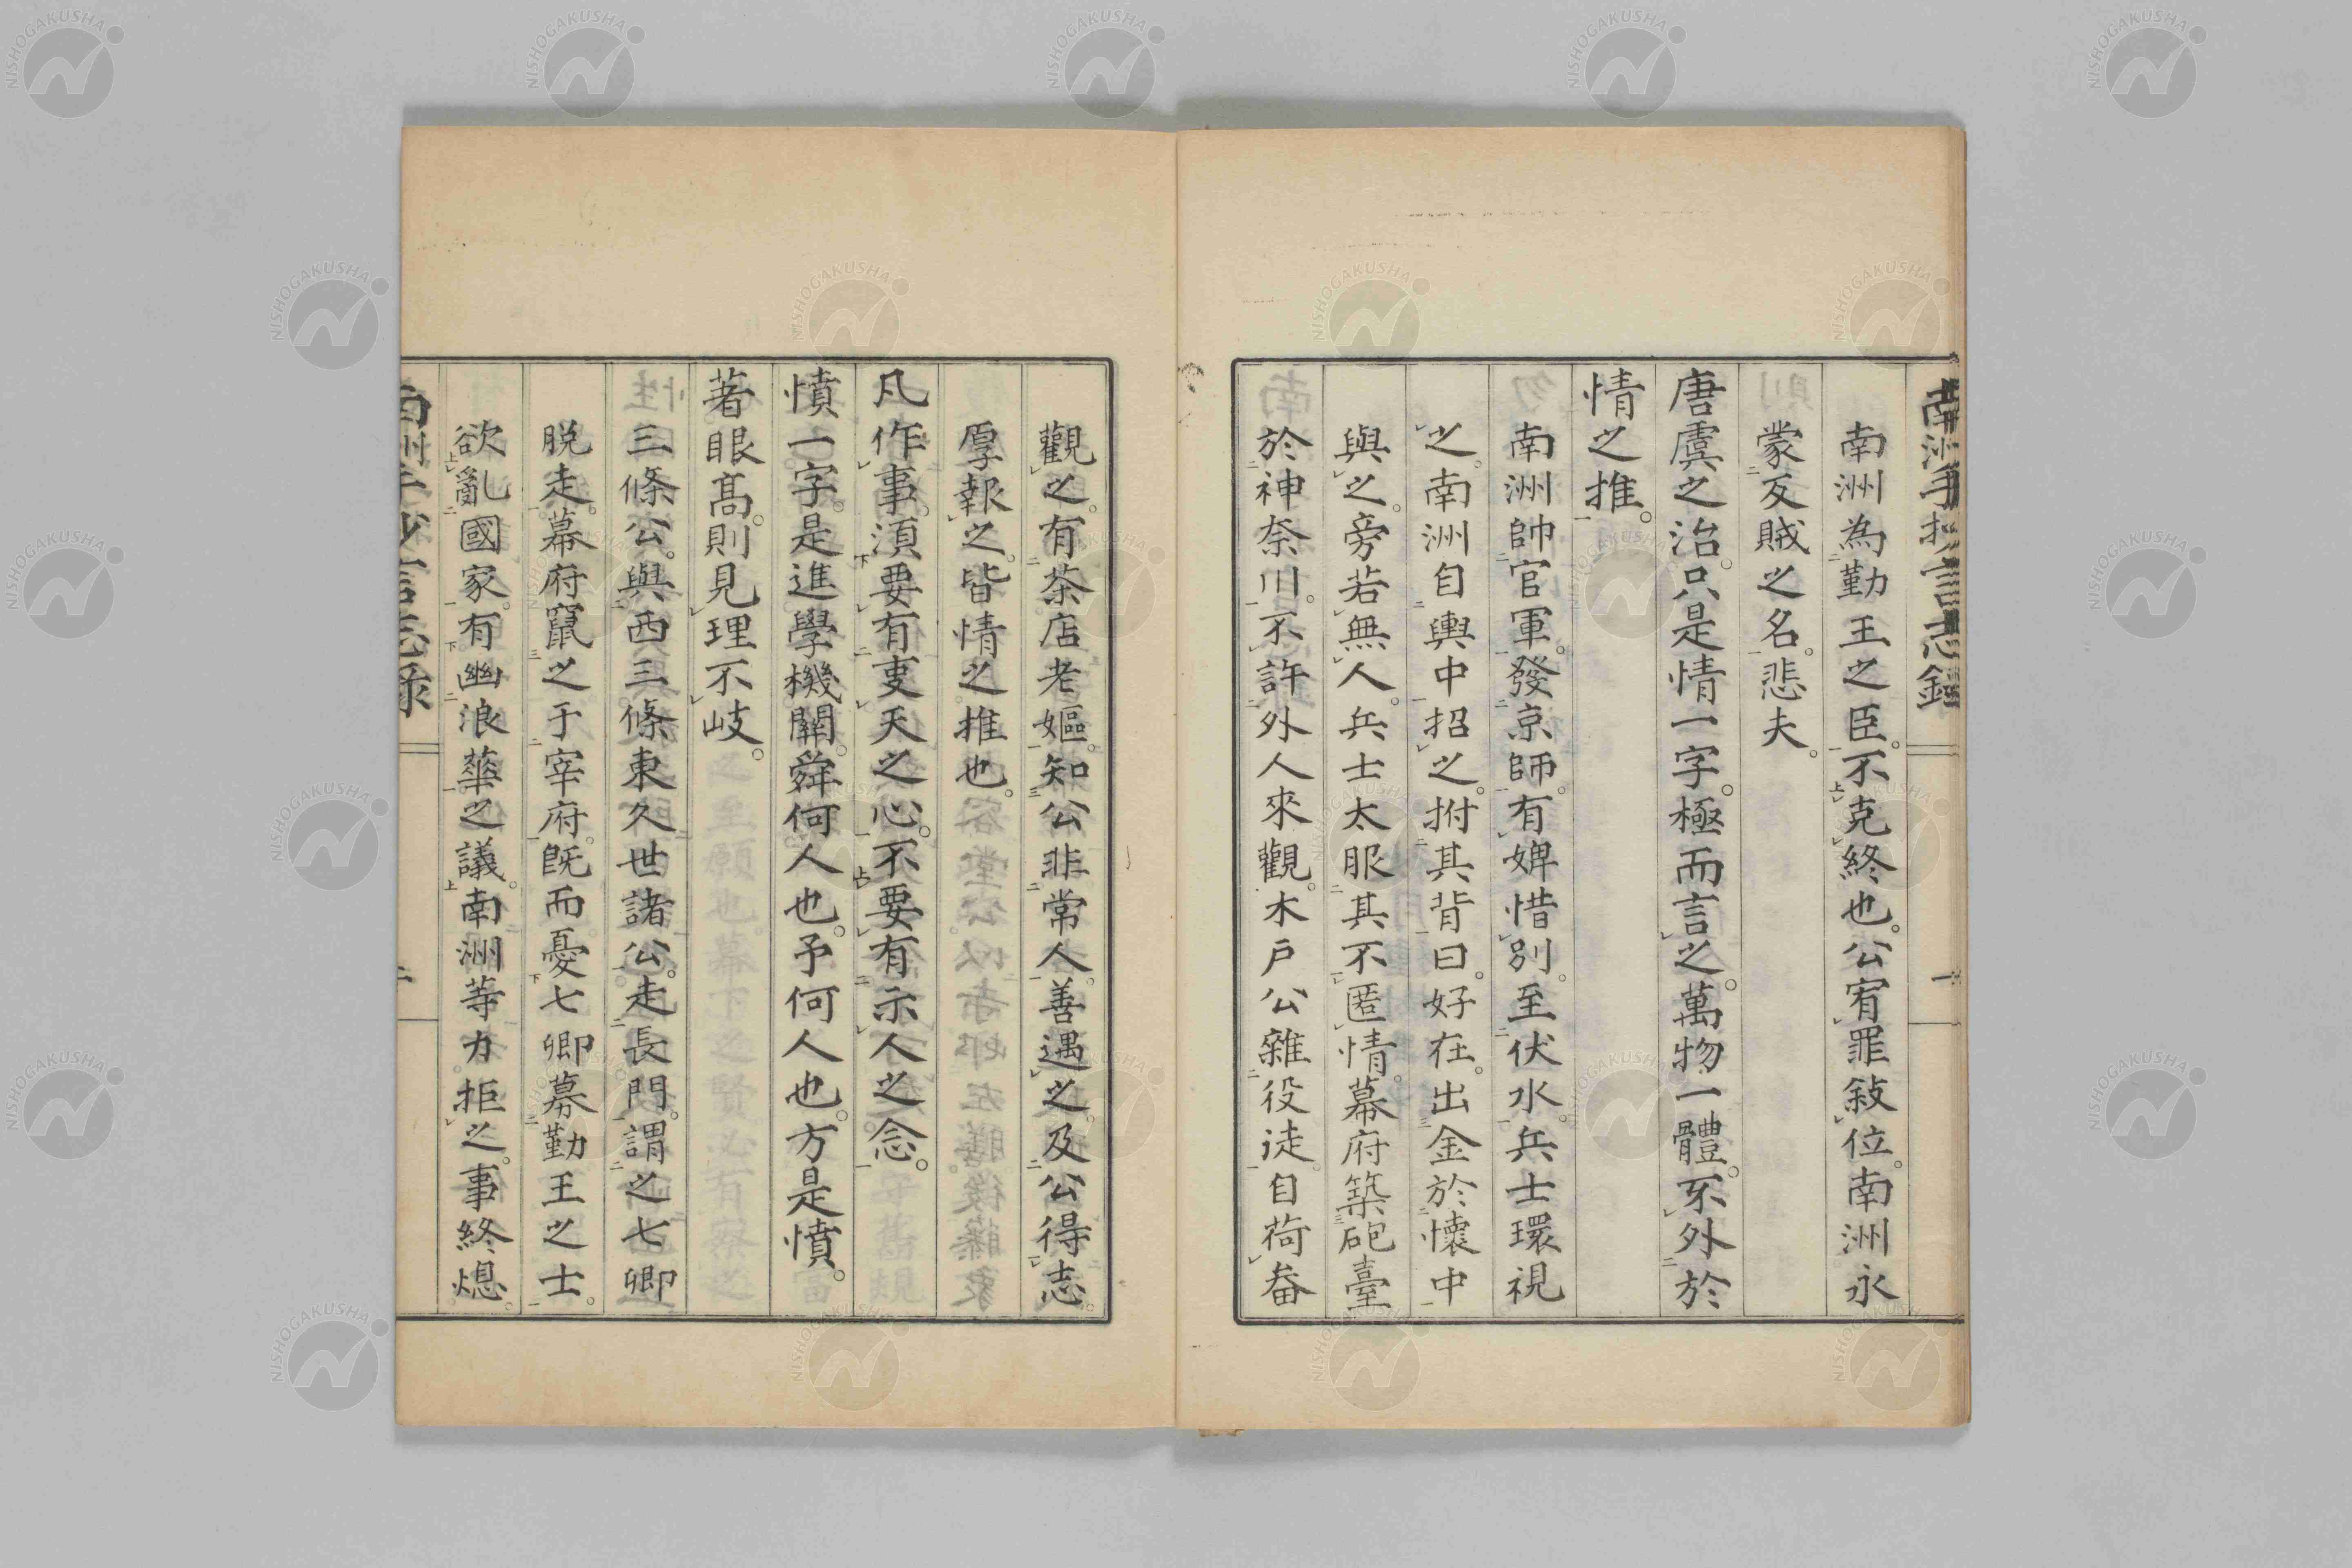 南洲手抄言志錄
一
南洲為勤王之臣。不克終也。公宥罪敍位。南洲永
蒙反賊之名。悲夫。
唐虞之治。只是情一字。極而言之。萬物一體。不外於
情之推。
南洲帥官軍。發京師。有婢惜別。至伏水。兵士環視
之。南洲自輿中招之。拊其背曰。好在。出金於懷中
與之。旁若無人。兵士太服其不匿情。幕府築砲臺
於神奈川。不許外人來觀。木戶公雜役徒。自荷畚
觀之。有茶店老嫗。知公非常人。善遇之。及公得志。
厚報之。皆情之推也。
凡作事。須要有事天之心。不要有示人之念。
憤一字。是進學機關。舜何人也。予何人也。方是憤。
著眼高。則見理不岐。
三條公。與西三條東久世諸公。走長門。謂之七卿
脱走。幕府竄之于宰府。既而憂七卿募勤王之士。
欲亂國家。有幽浪華之議。南洲等力拒之。事終熄。
南洲手抄言志錄
二
NISHOGAKUSHA